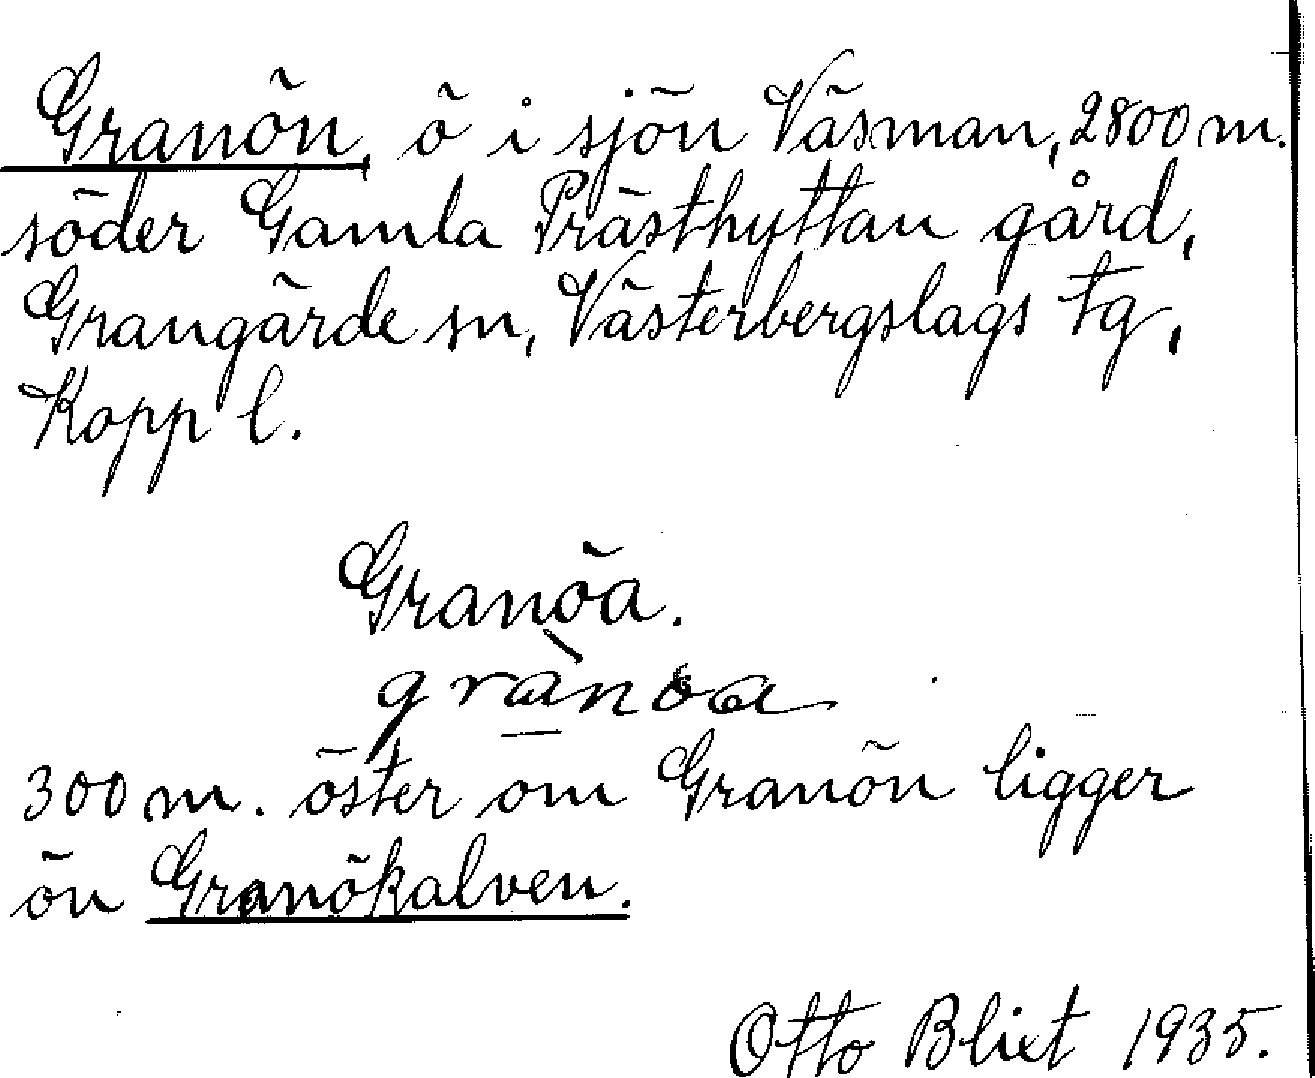 Granön, ö i sjön Väsman, 2800 m.
söder Gamla Prästhyttan gård,
Grangärde sn, Västerbergslags tg,
Kopp l.
Granöa.
grànɵa
300 m. öster om Granön ligger
ön Granökalven.
Otto Blixt 1935.